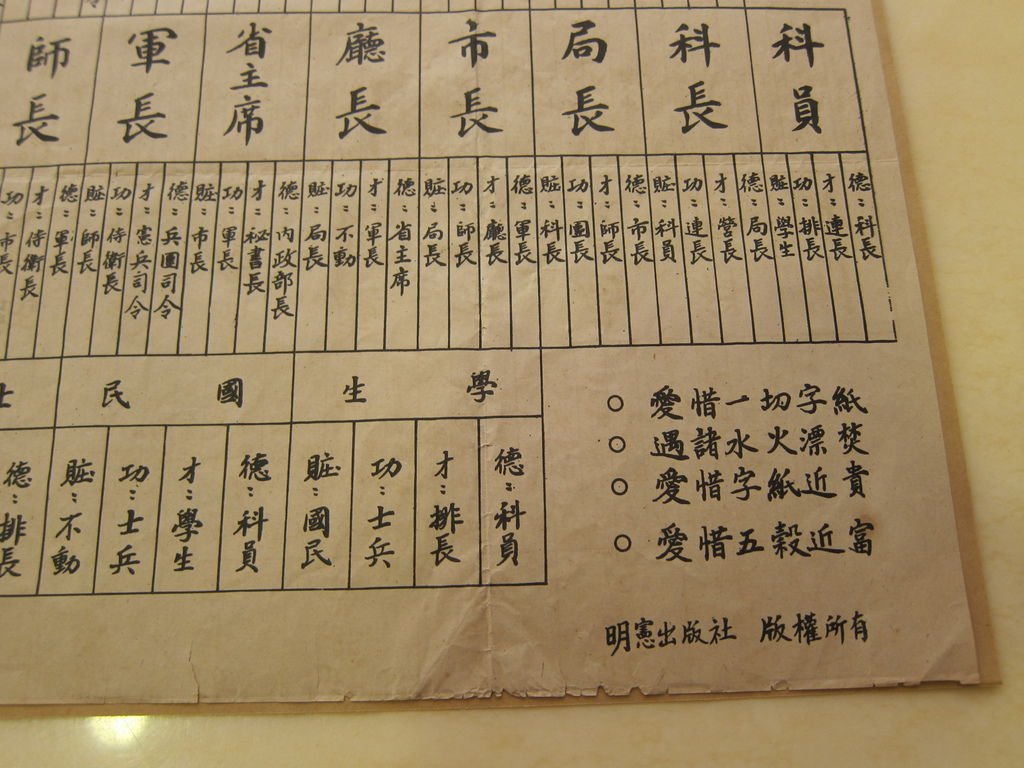 科員
科長
局長
市長
廳長
省主席
軍長
師長
德：科長
才：連長
功：排長
賍：學生
德：局長
才：營長
功：連長
賍：科員
德：市長
才：師長
功：團長
賍：科長
德：軍長
才：廳長
功：師長
賍：局長
德：省主席
才：軍長
功：不動
賍：局長
德：內政部長
才：祕書長
功：軍長
賍：市長
德：兵團司令
才：憲兵司令
功：侍衛長
賍：師長
德：軍長
才：侍衛長
功：市長
學生
國民
士
德：科員
才：排長
功：士兵
賍：國民
德：科員
才：學生
功：士兵
賍：不動
德：排長
○ 愛惜一切字紙
○ 遇諸水火漂焚
○ 愛惜字紙近貴
○ 愛惜五穀近富
明憲出版社 版權所有